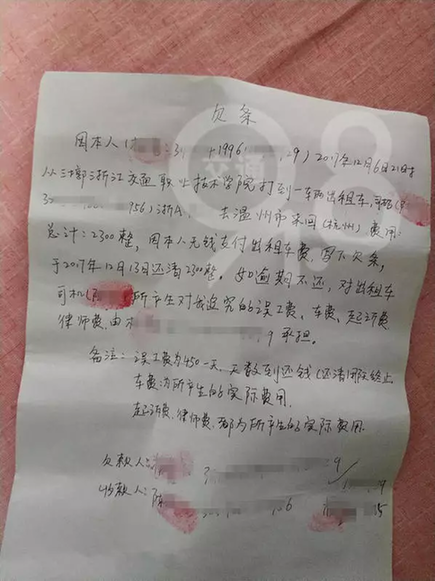 欠条
因本人(3 1996 29)2017年12月6日21时
从三墩浙江交通职业技术学院打到一车的出租车,
3 956)浙A. 去温州市来回(杭州)费用
总计:2300整,因本人无钱支付出租车费,因下欠条,
于2017年12月13日还清2300整,如逾期不还,对出租车
司机( 所产生对我追究的误工费、车费、起诉费
律师费,由 9承担.
备注:误工费为450一天,天数到还钱(还清)终止
车费为所产生的实际费用.
起诉费、律师费,都为所产生的实际费用.
欠款人: 3 9
收款人:陈 26 15